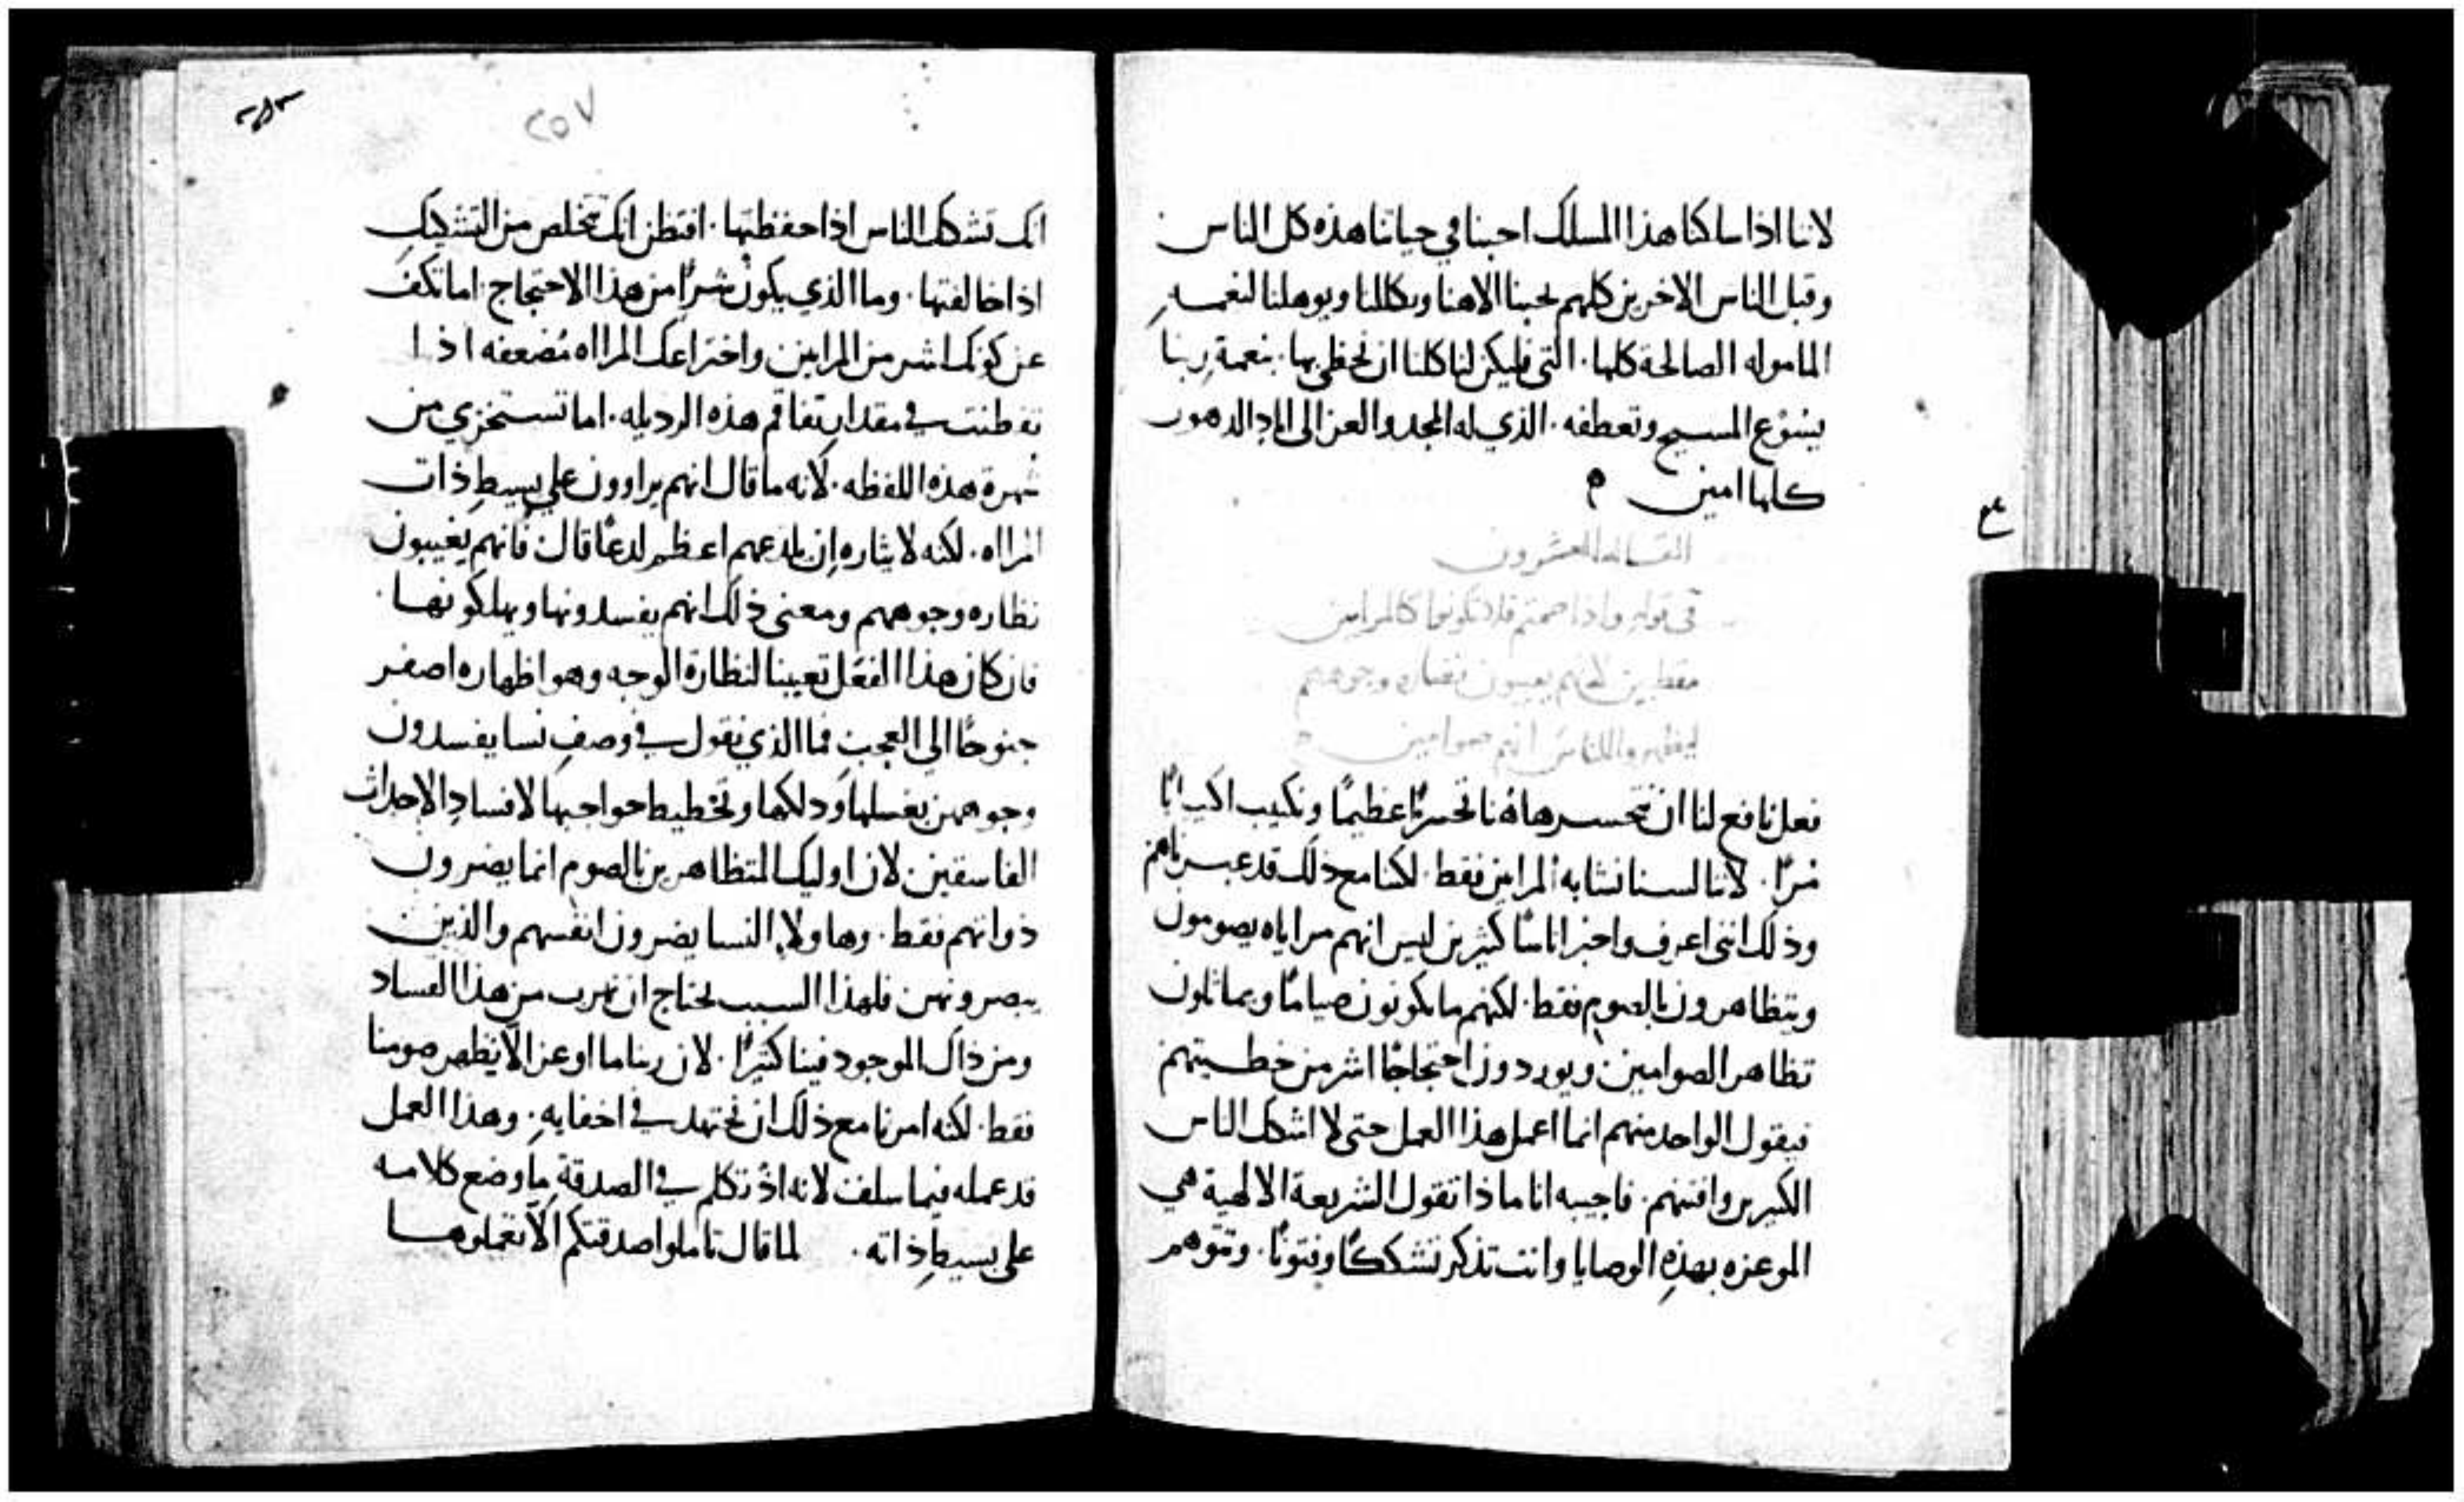 لاننا اذا سلكنا هذا المسلك احبنا في حياتنا هذه كل الناس
وقبل الناس الاخرين كلهم يحبنا الاهنا ويكللنا ويوهلنا لنعمه
الماموله الصالحة كلها. التي فليكن لنا كلنا ان نحظي بها. بنعمة ربنا
يسوع المسيح وتعطفه. الذي له المجد والعز الى اباد الدهور
كلها امين م
المقاله العشرون
في قوله واذا صمتم فلا تكونوا كالمرايين
مقطبين لانهم يعيبون نضاره وجوههم
ليظهروا للناس انهم صوامين
فعل نافع لنا ان نتحسر هاهنا تحسرًا عظيمًا ونكيب اكتيابًا
مُرًا. لاننا لسنا نشابه المرايين فقط. لكننا مع ذلك قد عبرناهم
وذلك انني اعرف واخبر اناسًا كثيرين ليس انهم مراياه يصومون
ويتظاهرون بالصوم فقط. لكنهم ما يكونون صيامًا ويماثلون
تظاهر الصوامين ويوردون احتجاجًا اشر من خطيتهم
فيقول الواحد منهم انما اعمل هذا العمل حتى لا اشكك الناس
الكثيرين وافتنهم. فاجيبه انا ماذا تقول الشريعة الالهية هي
الموعزه بهذه الوصايا وانت تذكر تشككًا وفتونًا. وتتوهم
٢٥٧
انك تشكك الناس اذا حفظتها. افتظن انك تتخلص من التشكيك
اذا خالفتها. وما الذي يكون شرًا من هذا الاحتجاج. اما تكف
عن كونك اشر من المرايين واختراعك المرااه مُضعفه اذا
تفطنت في مقدار تفاقم هذه الرذيله. اما تستخزي من
شهرة هذه اللفظه. لانه ما قال انهم يراوون علي بسيط ذات
المرااه. لكنه لايثاره ان يلدعهم اعظم لدعًا قال فانهم يعيبون
نظاره وجوههم ومعنى ذلك انهم يفسدونها ويهلكونها.
فان كان هذا الفعل تعييبا لنظارة الوجه وهو اظهاره اصفر
جنوحًا الي العجب فما الذي نقول في وصف نسا يفسدون
وجوههن بغسلها ودلكها وتخطيط حواجبها لافساد الاحداث
الفاسقين لان اوليك المتظاهرين بالصوم انما يضرون
ذواتهم فقط. وهاولاء النسا يضرون انفسهم والذين
يبصرونهن فلهذا السبب نحتاج ان نهرب من هذا الفساد
ومن ذاك الموجود فينا كثيرًا. لان ربنا ما اوعز الّا يظهر صومنا
فقط. لكنه امرنا مع ذلك ان نجتهد في اخفايه. وهذا العمل
قد عمله فيما سلف لانه اذ تكلم في الصدقة ما وضع كلامه
على بسيط ذاته. لما قال تاملوا صدقتكم الّا تعملوها